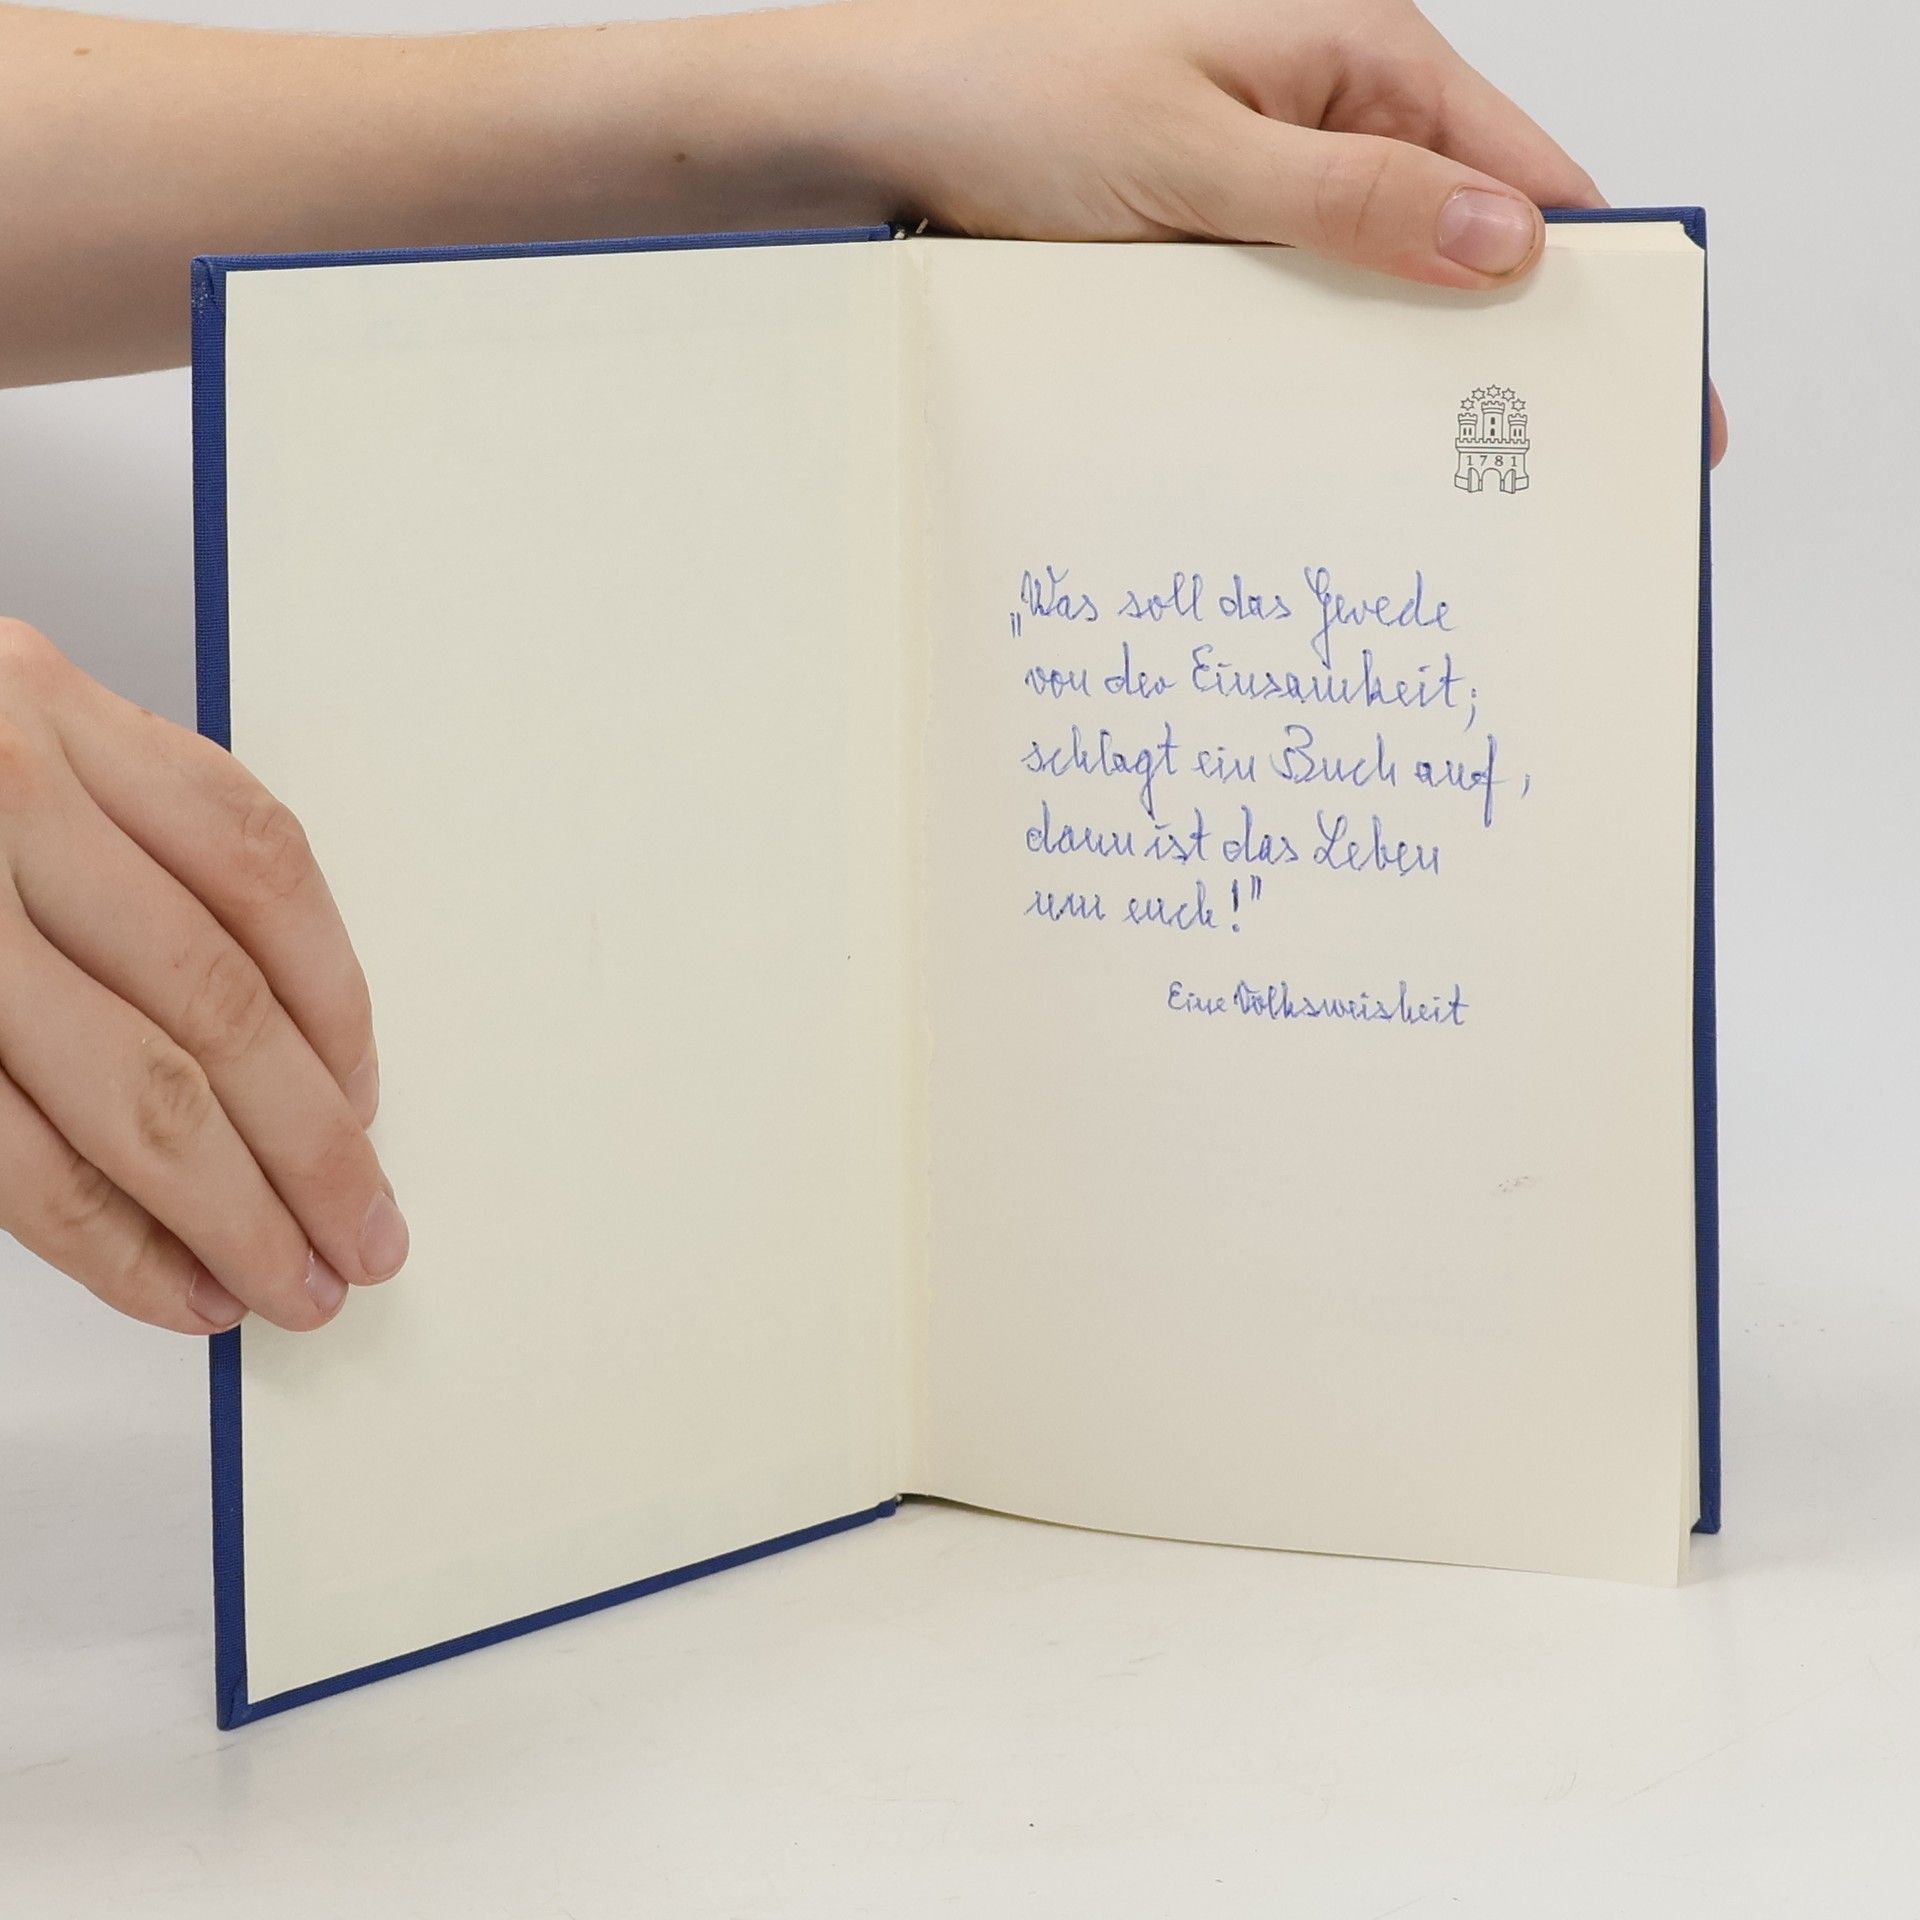 1781
„Was soll das Gerede
von der Einsamkeit;
schlagt ein Buch auf,
dann ist das Leben
um euch!"
Eine Volksweisheit